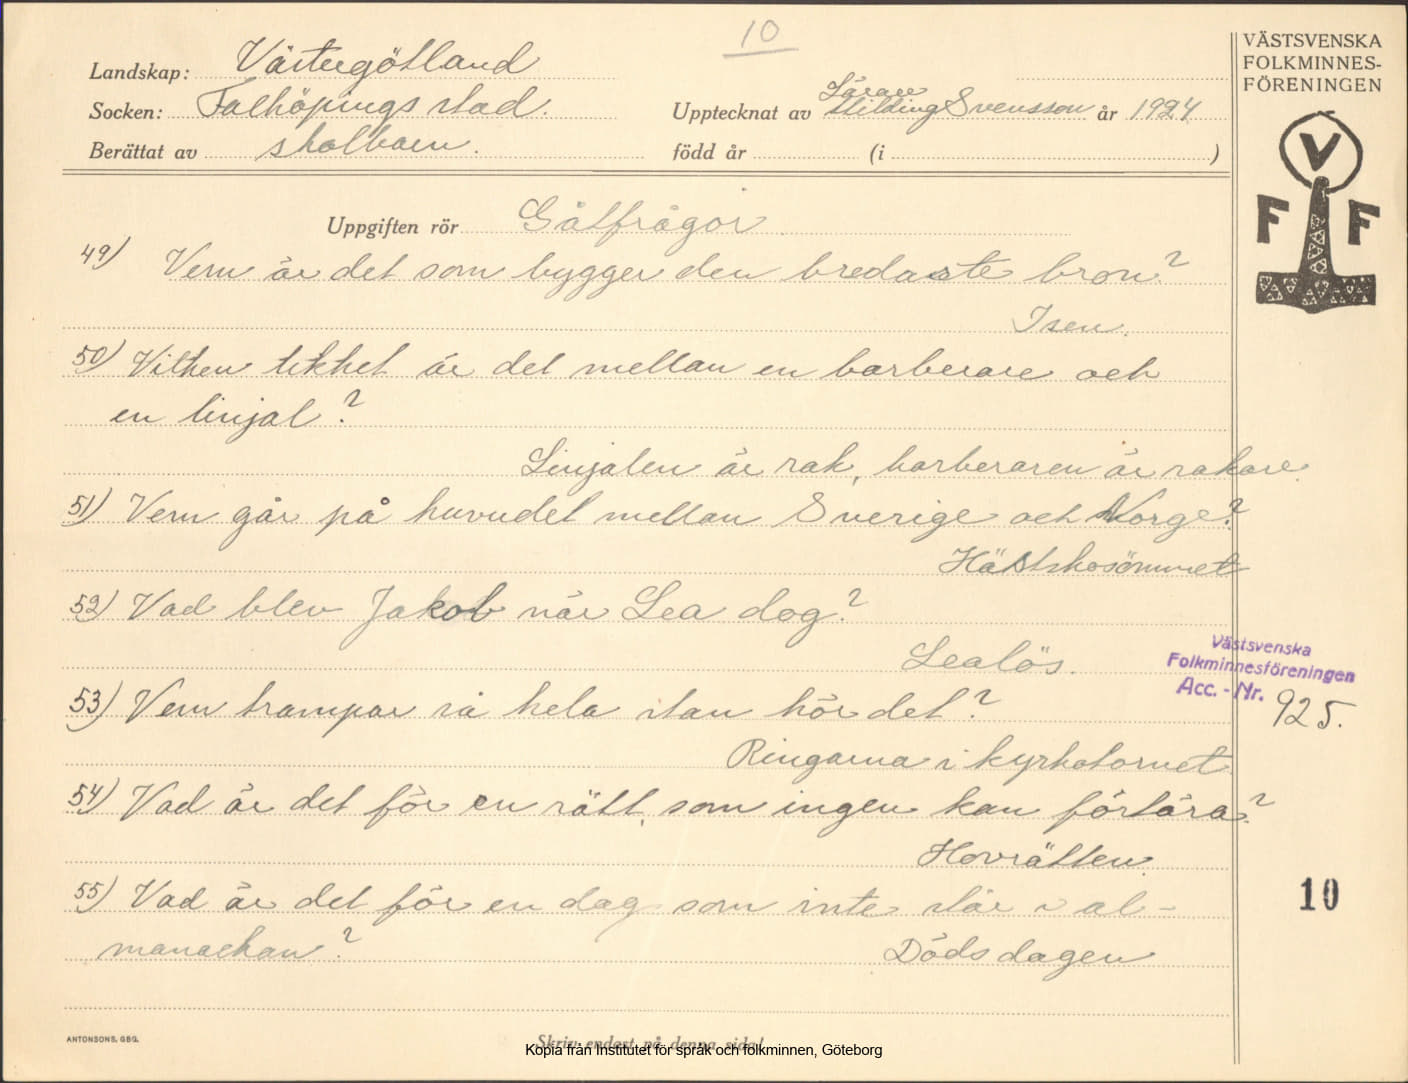 10
VÄSTSVENSKA
FOLKMINNES-
FÖRENINGEN
Landskap: Västergötland
Socken: Falköpings stad.
Upptecknat av Lärare Hilding Svensson år 1924
Berättat av skolbarn.
född år (i )
V
F F
Uppgiften rör Gåtfrågor.
49) Vem är det som bygger den bredaste bron?
Isen.
50) Vilken likhet är det mellan en barberare och
en linjal?
Linjalen är rak, barberaren är rakare.
51) Vem går på huvudet mellan Sverige och Norge?
Hästskosömmet
52) Vad blev Jakob när Lea dog?
Lealös.
Västsvenska
Folkminnesföreningen
Acc. - Nr. 925.
53) Vem trampar så hela stan hör det?
Ringarna i kyrkotornet
54) Vad är det för en rätt, som ingen kan förtära?
Hovrätten.
10
55) Vad är det för en dag som inte står i al-
manackan?
Dödsdagen
ANTONSONS, GBG.
Skriv endast på denna sida!
Kopia från Institutet för språk och folkminnen, Göteborg